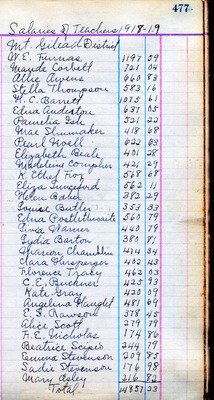 477
Salaries of Teachers 1918-19
Mt. Gilead District
W. E. Furnas 1197 59
Maude Corbitt 721 04
Allie Owens 660 83
Stella Thompson 583 16
W. C. Barrett 1075 61
Edna Anderson 637 05
Pamelia 521 22
Mae Shumaker 418 68
Pearl Howell 622 03
Elizabeth Beale 401 28
Madeline 421 29
K. Ethel Fox 568 68
Eliza 562 11
Helen Baker 382 29
Louise Butler 353 33
Edna Postlethwaite 560 79
Niva Warner 440 79
Lydia Barton 380 81
Sharon 414 34
Clara 402 43
Florence Tracy 462 03
C. E. Buckner 425 93
Kate Gray 420 09
Angelina 481 69
E. S. Rawson 378 45
Alice Scott 279 79
F. E. Nicholas 174 86
Beatrice Scipio 244 79
Emma Stevenson 209 85
Sadie Stevenson 176 98
Mary 216 82
Total 14857 23